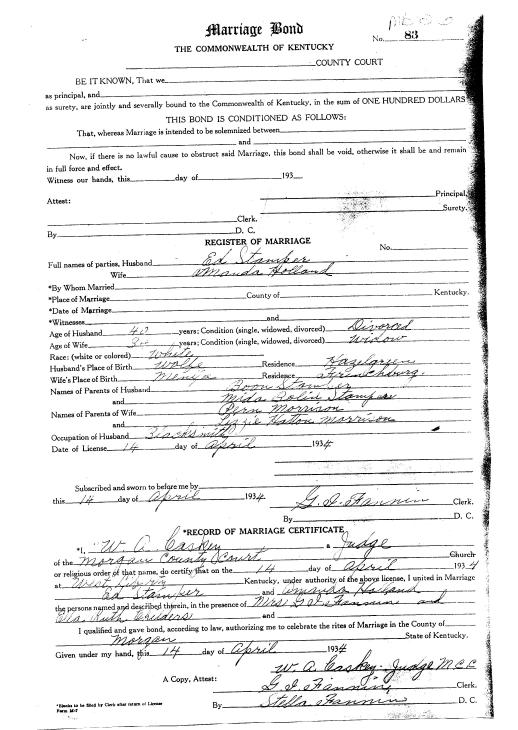 Marriage Bond
No. 83
THE COMMONWEALTH OF KENTUCKY
COUNTY COURT
BE IT KNOWN, That we
as principal, and
as surety, are jointly and severally bound to the Commonwealth of Kentucky, in the sum of ONE HUNDRED DOLLARS
THIS BOND IS CONDITIONED AS FOLLOWS:
That, whereas Marriage is intended to be solemnized between
and
Now, if there is no lawful cause to obstruct said Marriage, this bond shall be void, otherwise it shall be and remain
in full force and effect.
Witness our hands, this day of 193
Principal,
Attest: Surety.
Clerk.
By D. C.
REGISTER OF MARRIAGE
No.
Full names of parties, Husband Ed Stamper
Wife Amanda Holland
*By Whom Married
*Place of Marriage County of Kentucky.
*Date of Marriage
*Witnesses and
Age of Husband 40 years; Condition (single, widowed, divorced) Divorced
Age of Wife years; Condition (single, widowed, divorced) Widow
Race: (white or colored) White
Husband's Place of Birth Wolfe Residence Hazelgreen
Wife's Place of Birth Menifee Residence Frenchburg.
Names of Parents of Husband Boon Stamper
and Mida Bolin Stamper
Names of Parents of Wife Pern Morrison
and Lizzie Hatton Morrison
Occupation of Husband Blacksmith
Date of License 14 day of April 1934
Subscribed and sworn to before me by
this 14 day of April 1934 G. I. Fannin Clerk.
By D. C.
*RECORD OF MARRIAGE CERTIFICATE
*I, W. A. Caskey a Judge
of the Morgan County Court Church
or religious order of that name, do certify that on the 14 day of April 1934
at West Liberty Kentucky, under authority of the above license, I united in Marriage
Ed Stamper and Amanda Holland
the persons named and described therein, in the presence of Mrs G I Fannin and
Ella Ruth and
I qualified and gave bond, according to law, authorizing me to celebrate the rites of Marriage in the County of
Morgan State of Kentucky.
Given under my hand, this 14 day of April 1934
W. A. Caskey - Judge M C C
A Copy, Attest: G. I. Fannin, Clerk.
By Stella Fannin D. C.
*Blanks to be filed by Clerk after return of License
Form M-7